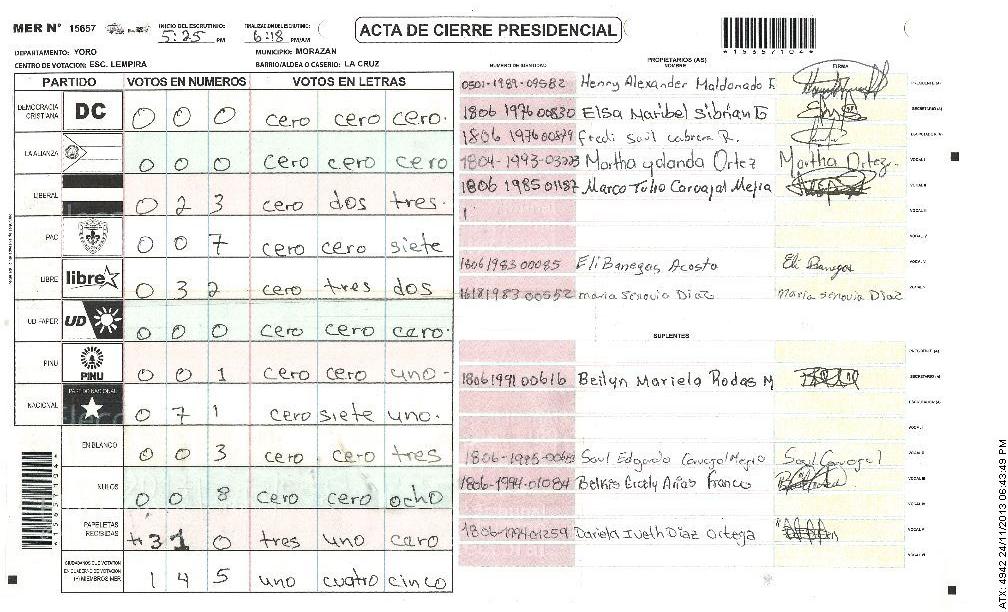 MER N° 15657
INICIO DEL ESCRUTINIO: 5:25 PM
FINALIZACION DEL ESCRUTINIO: 6:18 PM/AM
ACTA DE CIERRE PRESIDENCIAL
*15657104*
DEPARTAMENTO: YORO
MUNICIPIO: MORAZAN
CENTRO DE VOTACION: ESC. LEMPIRA
BARRIO/ALDEA O CASERIO: LA CRUZ
PARTIDO VOTOS EN NUMEROS VOTOS EN LETRAS
DEMOCRACIA CRISTIANA DC 0 0 0 cero cero cero.
LA ALIANZA 0 0 0 cero cero cero
LIBERAL 0 2 3 cero dos tres.
PAC 0 0 7 cero cero siete
LIBRE libre 0 3 2 cero tres dos
UD FAPER UD 0 0 0 cero cero cero.
PINU PINU 0 0 1 cero cero uno -
NACIONAL PARTIDO NACIONAL 0 7 1 cero siete uno.
EN BLANCO 0 0 3 cero cero tres
NULOS 0 0 8 cero cero ocho
PAPELETAS RECIBIDAS 3 1 0 tres uno cero
CIUDADANOS QUE VOTARON EN CUADERNO DE VOTACION (+) MIEMBROS MER 1 4 5 uno cuatro cinco
PROPIETARIOS (AS)
NUMERO DE IDENTIDAD NOMBRE FIRMA
0501-1989-09582 Henry Alexander Maldonado PRESIDENTE (A)
1806 1976 00830 Elsa Maribel Sibrian SECRETARIO (A)
1806 1976 00879 Fredi Saúl Cabrera R. ESCRUTADOR (A)
1804-1993-03223 Martha Yolanda Ortez Martha Ortez VOCAL I
1806 1985 01187 Marco Tolio Carvajal Mejia VOCAL II
VOCAL III
VOCAL IV
1806 1983 00085 Eli Banegas Acosta Eli Banegas VOCAL V
1983 00552 maria Senovia Diaz maria Senovia Diaz
SUPLENTES
PRESIDENTE (A)
1806 1991 00616 Beilyn Mariela Rodas M SECRETARIO (A)
ESCRUTADOR (A)
VOCAL I
Saul Edgardo Carvajal Mejia Saul Carvajal VOCAL II
1806-1994-01084 Belkis Arias Franco VOCAL III
VOCAL IV
Daniela Iveth Diaz Ortega VOCAL V
VOCAL VI
ATX: 4942 24/11/2013 06:43:49 PM